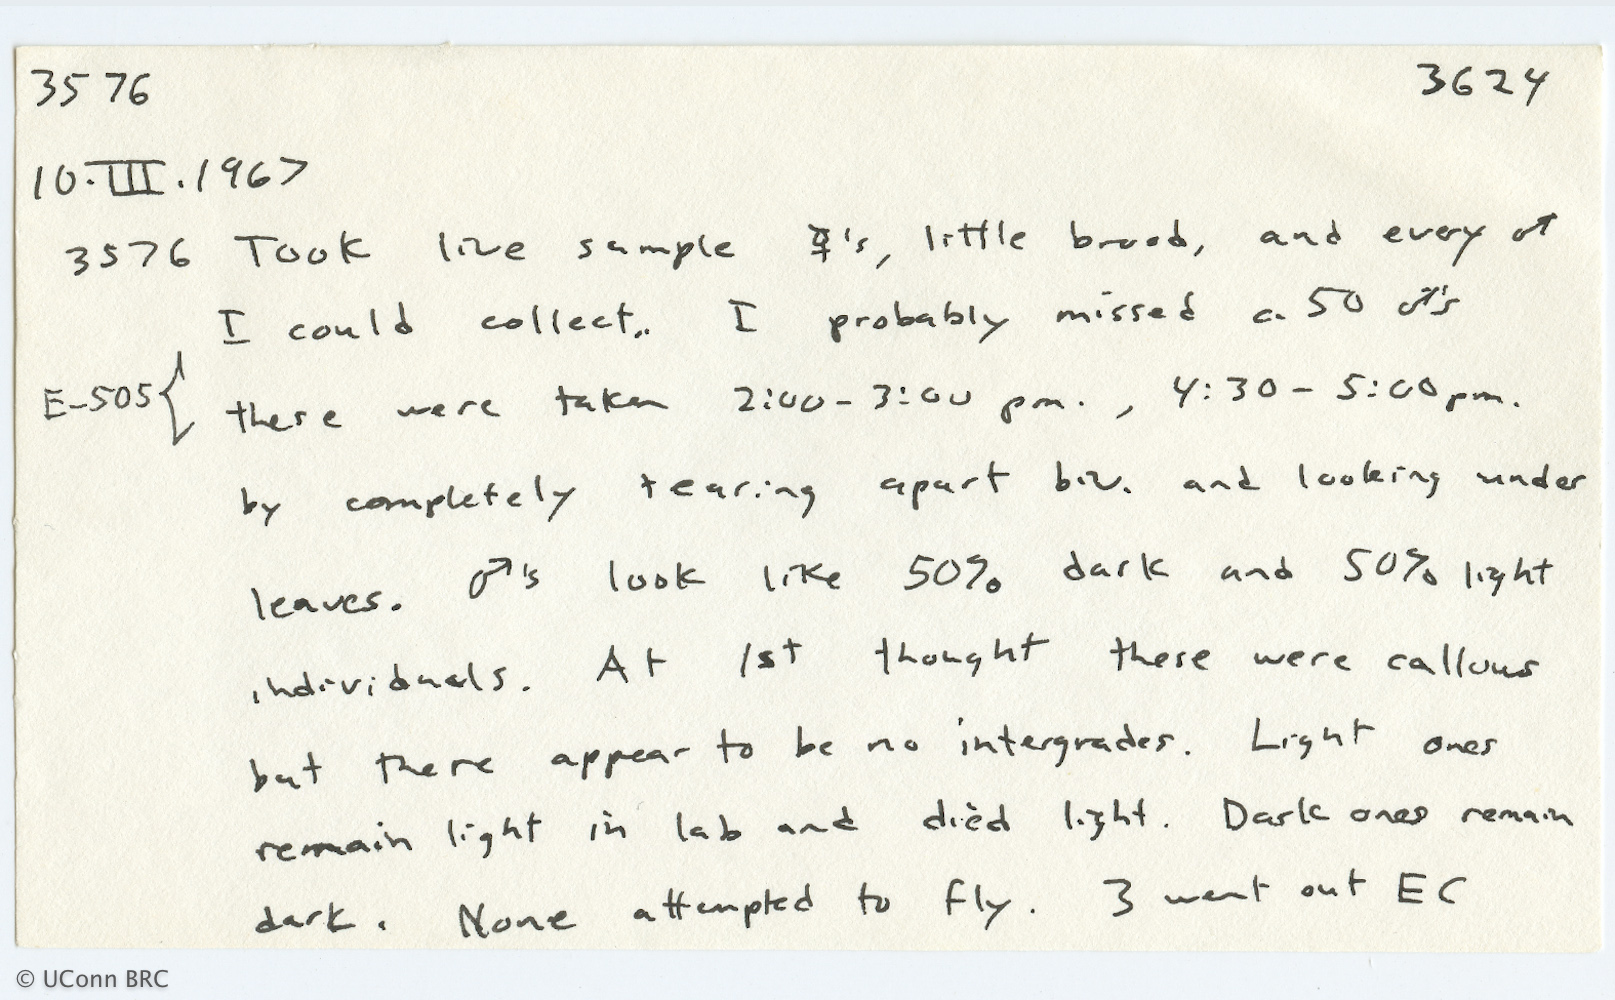 3576 3624
10.III.1967
3576 Took live sample ☿'s, little brood, and every ♂
I could collect.. I probably missed ca. 50 ♂'s
E-505 { these were taken 2:00-3:00 pm., 4:30-5:00 pm.
by completely tearing apart biv. and looking under
leaves. ♂'s look like 50% dark and 50% light
individuals. At 1st thought these were callows
but there appear to be no intergrades. Light ones
remain light in lab and died light. Dark ones remain
dark. None attempted to fly. 3 went out EC
© UConn BRC